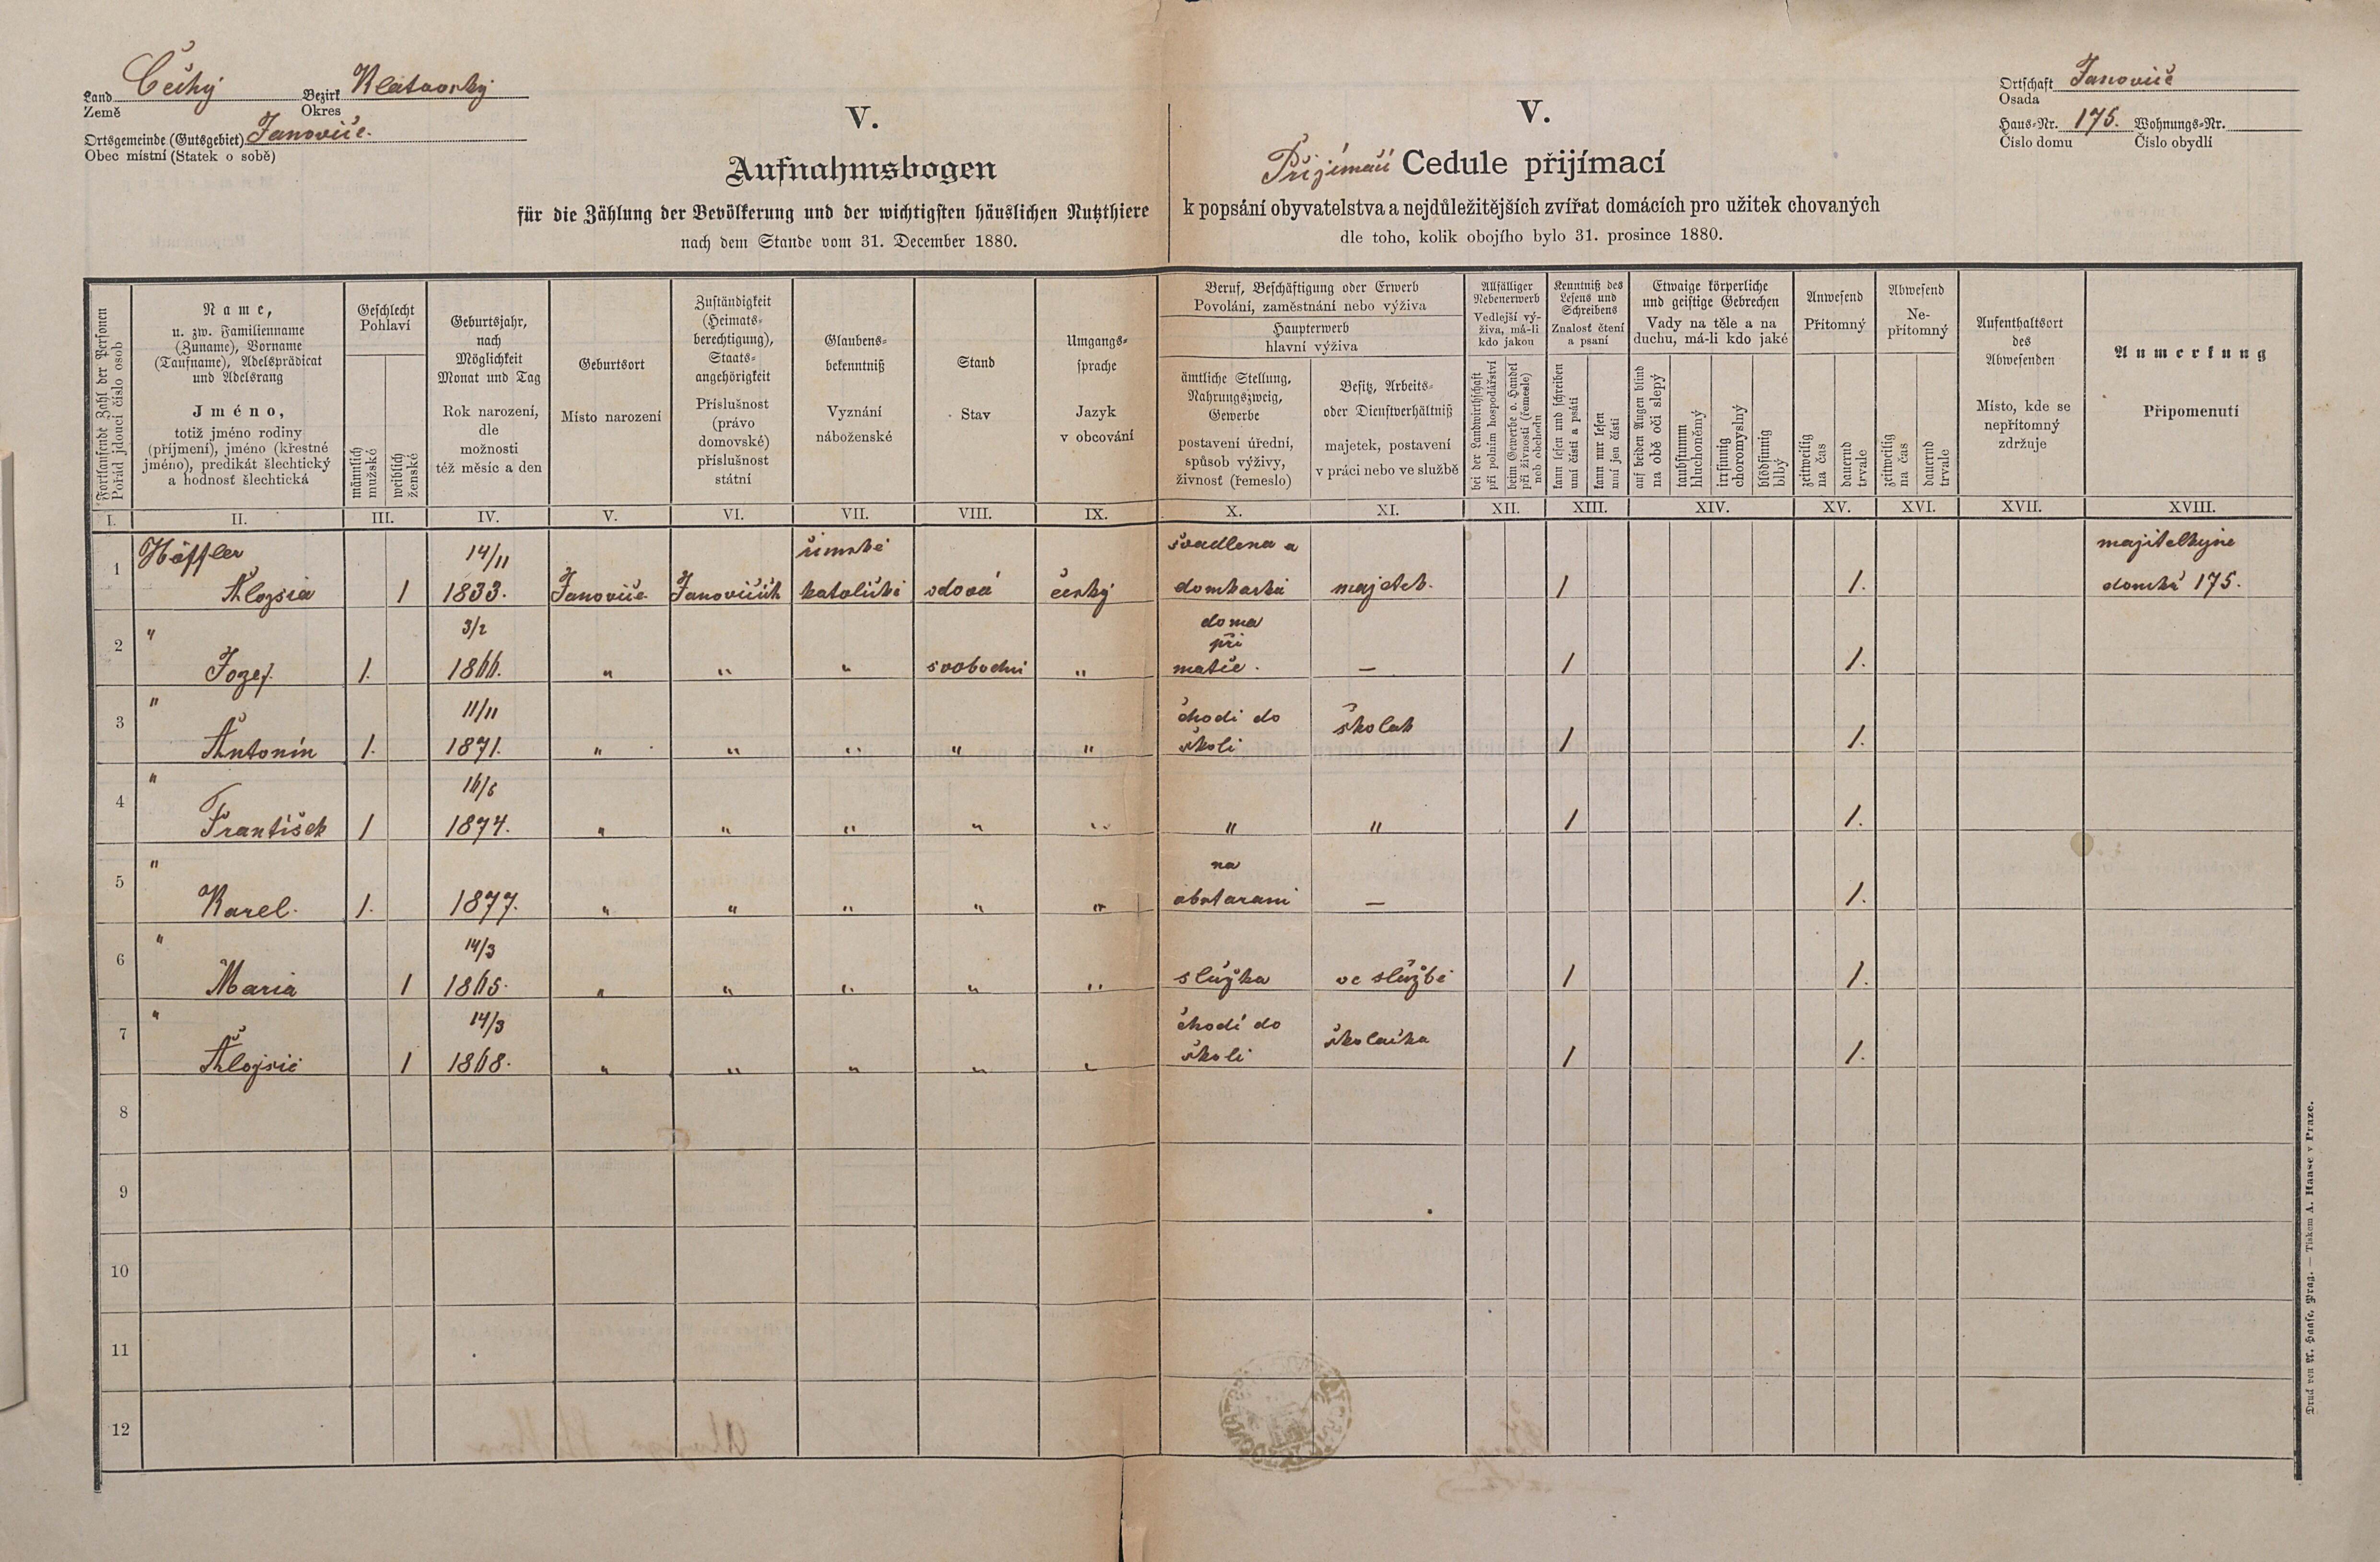 Land Čechy Bezirk Klatovský
Země Okres
Ortsgemeinde (Gutsgebiet) Janovice.
Obec místní (Statek o sobě)
V.
Aufnahmsbogen
für die Zählung der Bevölkerung und der wichtigsten häuslichen Nutzthiere
nach dem Stande vom 31. December 1880.
V.
Přijímací Cedule přijímací
k popsání obyvatelstva a nejdůležitějších zvířat domácích pro užitek chovaných
dle toho, kolik obojího bylo 31. prosince 1880.
Ortschaft Janovice
Osada
Haus-Nr. 175. Wohnungs-Nr.
Číslo domu Číslo obydlí
Fortlaufende Zahl der Personen
Pořád jdoucí číslo osob
Name,
u. zw. Familienname
(Zuname), Vorname
(Taufname), Adelsprädicat
und Adelsrang
Jméno,
totiž jméno rodiny
(příjmení), jméno (křestné
jméno), predikát šlechtický
a hodnost šlechtická
Geschlecht
Pohlaví
männlich
mužské
weiblich
ženské
Geburtsjahr,
nach
Möglichkeit
Monat und Tag
Rok narození,
dle
možnosti
též měsíc a den
Geburtsort
Místo narození
Zuständigkeit
(Heimats-
berechtigung),
Staats-
angehörigkeit
Příslušnost
(právo
domovské)
příslušnost
státní
Glaubens-
bekenntniß
Vyznání
náboženské
Stand
Stav
Umgangs-
sprache
Jazyk
v obcování
Beruf, Beschäftigung oder Erwerb
Povolání, zaměstnání nebo výživa
Haupterwerb
hlavní výživa
ämtliche Stellung,
Nahrungszweig,
Gewerbe
postavení úřední,
spůsob výživy,
živnosť (řemeslo)
Besitz, Arbeits-
oder Dienstverhältniß
majetek, postavení
v práci nebo ve službě
Allfälliger
Nebenerwerb
Vedlejší vý-
živa, má-li
kdo jakou
bei der Landwirthschaft
při polním hospodářství
beim Gewerbe o. Handel
při živnosti (řemesle)
neb obchodu
Kenntniß des
Lesens und
Schreibens
Znalosť čtení
a psaní
kann lesen und schreiben
umí čísti a psáti
kann nur lesen
umí jen čísti
Etwaige körperliche
und geistige Gebrechen
Vady na těle a na
duchu, má-li kdo jaké
auf beiden Augen blind
na obě oči slepý
taubstumm
hluchoněmý
irrsinnig
choromyslný
blödsinnig
blbý
Anwesend
Přítomný
zeitweilig
na čas
dauernd
trvale
Abwesend
Ne-
přítomný
zeitweilig
na čas
dauernd
trvale
Aufenthaltsort
des
Abwesenden
Místo, kde se
nepřítomný
zdržuje
Anmerkung
Připomenutí
I. II. III. IV. V. VI. VII. VIII. IX. X. XI. XII. XIII. XIV. XV. XVI. XVII. XVIII.
Höffler 14/11 římské švadlena a majitelkyne
1 Aloysia 1 1833. Janovice Janovicích katolické vdová český domkařka majetek. 1 1. domku 175.
" 3/2 doma
2 při
Jozef. 1. 1866. " " " svobodni " matce. — 1 1.
" 11/11 chodi do školak
3 Antonín 1. 1871. " " " " " školi 1 1.
" 16/6
4 František 1 1874. " " " " " " " 1 1.
" na
5 Karel. 1. 1877. " " " " " obstarani — 1.
" 14/3
6 Maria 1 1865. " " " " " služka ve službě 1 1.
" 14/3 chodí do školačka
7 Alojsie 1 1868. " " " " " školi 1 1.
8
9
10
11
12
Druck von A. Haase, Prag. — Tiskem A. Haase v Praze.